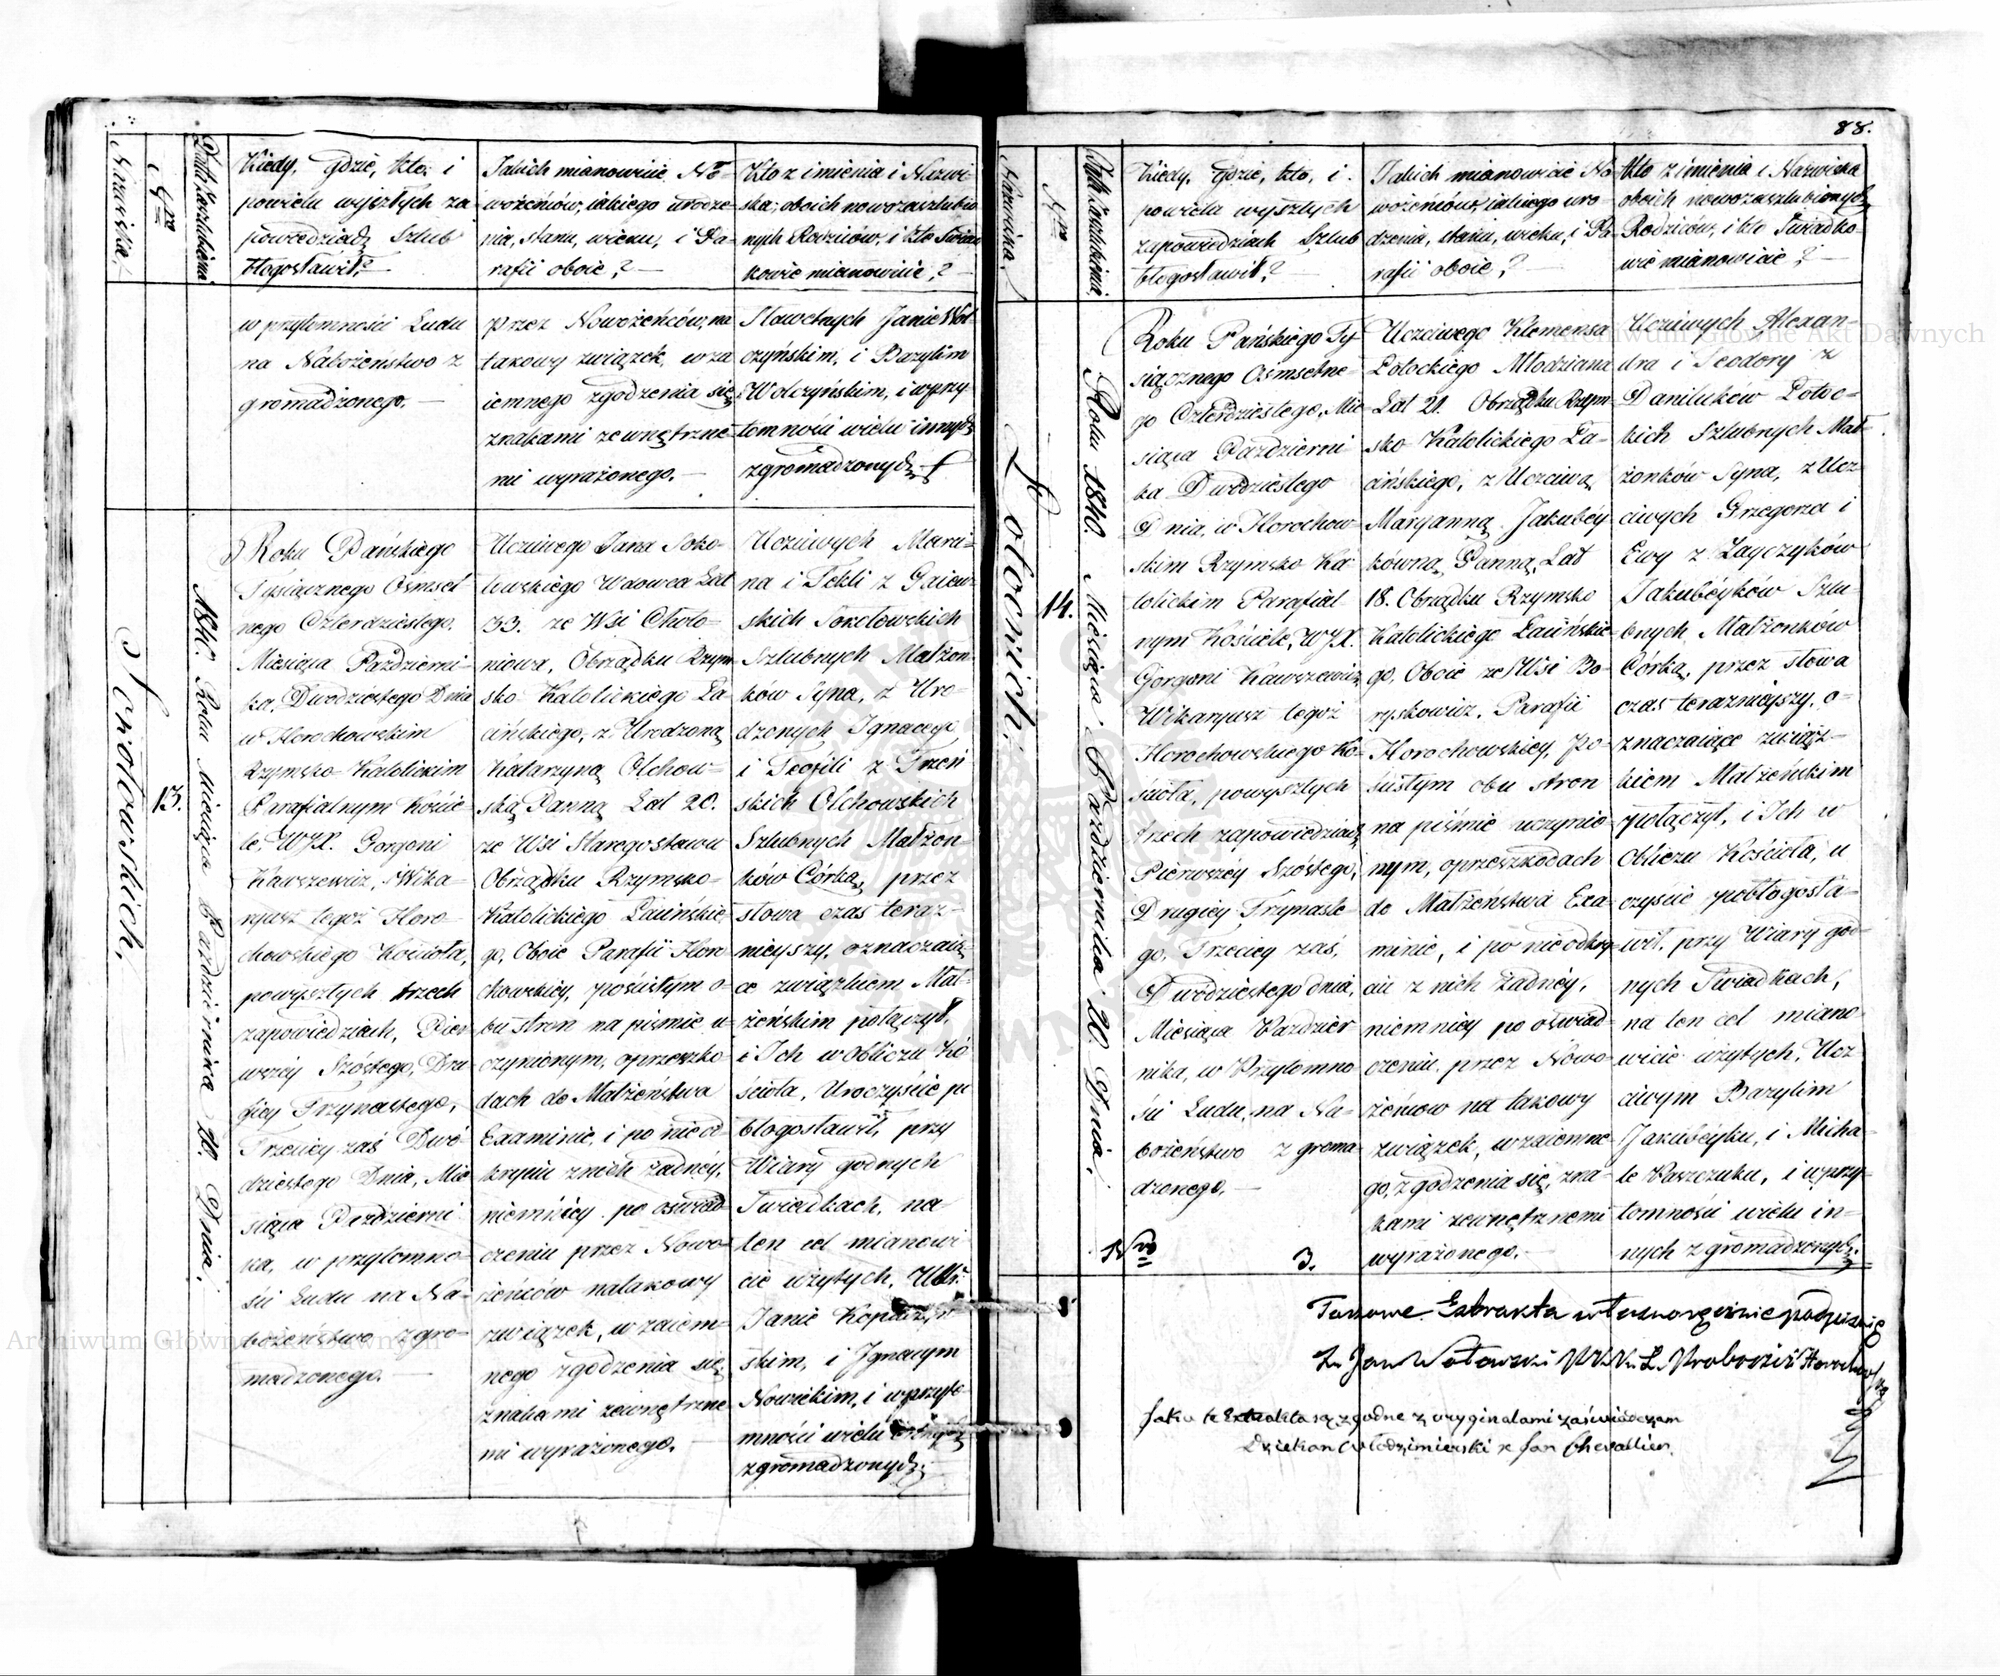 88.
Nazwiska.
Nro
Data Zaszlubienia
Kiedy, gdzie, kto, i
powielu wyszłych za
powiedziach Szlub
błogosławił?
Jakich mianowicie No-
wożeńców, iakiego urodze-
nia, stanu, wieku, i Pa-
rafii oboie?
Kto z imienia i Nazwi-
ska, oboich nowozaszlubio-
nych Rodziców, i kto Świad-
kowie mianowicie?
w przytomności Ludu
na Nabożeństwo z
gromadzonego.
przez Nowożeńców, na
takowy związek, wza
iemnego zgodzenia się,
znakami zewnętrzne-
mi wyrażonego.
Sławetnych Janie Woł-
czyńskim, i Bazylim
Wołczyńskim, i w przy
tomności wielu innych
zgromadzonych.
Sokołowskich.
13.
1840. Roku Miesiąca Października 20. Dnia.
Roku Pańskiego
Tysiącznego Ośmset
nego Czterdziestego,
Miesiąca Październi-
ka, Dwódziestego Dnia
w Horochowskim
Rzymsko Katolickim
Parafialnym Koście
le, WJX. Gorgoni
Kawszewicz, Wika-
ryusz tegoż Horo-
chowskiego Kościoła,
powyszłych trzech
zapowiedziach, Pier
wszéy Szóstego, Dru
giéy Trzynastego,
Trzeciéy zaś Dwó-
dziestego Dnia, Mie
siąca Październi
ka, w przytomno-
ści Ludu na Na-
bożeństwo zgro-
madzonego.
Uczciwego Jana Soko-
łowskiego Wdowca Lat
33. ze Wsi Choło-
niowa, Obrządku Rzym
sko Katolickiego Ła-
cińskiego, z Urodzoną
Katarzyną Olchow-
ską Panną Lat 20.
ze Wsi Staregostawu
Obrządku Rzymsko-
Katolickiego Łacińskie
go, Oboie Parafii Horo
chowskiéy, pościsłym o-
bu stron na piśmie u-
czynionym, oprzeszko-
dach do Małżeństwa
Examinie, i po nieod-
kryciu znich żadnéy,
niemniéy po oświad-
czeniu przez Nowo-
żeńców natakowy
związek, wzaiem-
nego zgodzenia się,
znakami zewnętrzne
mi wyrażonego.
Uczciwych Marci-
na i Tekli z Gaiew-
skich Sokołowskich
Szlubnych Małżon-
ków Syna, z Uro-
dzonych Ignacego
i Teofili z Trzeń
skich Olchowskich
Szlubnych Małżon-
ków Córką, przez
słowa czas teraz-
nieyszy, oznaczaią
ce związkiem Mał-
żeńskim połączył,
i Ich w Obliczu Ko
ścioła, Uroczyście po
błogosławił, przy
Wiary godnych
Świadkach, na
ten cel mianowi
cie użytych,
Janie
skim, i Ignacym
Nowickim, i w przyto-
mności wielu innych
zgromadzonych.
Nazwiska.
Nro
Data Zaszlubienia
Kiedy, gdzie, kto, i
powielu wyszłych
zapowiedziach Szlub
błogosławił?
Jakich mianowicie No
wożeńców, iakiego uro-
dzenia, stanu, wieku, i Pa-
rafii oboie?
Kto z imienia i Nazwiska
oboich nowozaszlubionych
Rodziców, i kto Świadko-
wie mianowicie?
Potockich.
14.
Roku 1840. Miesiąca Października 20. Dnia.
Roku Pańskiego Ty
siącznego Ośmsetne-
go Czterdziestego, Mie
siąca Październi
ka Dwódziestego
Dnia, w Horochow-
skim Rzymsko Ka
tolickim Parafial-
nym Kościele, WJX.
Gorgoni Kawszewicz
Wikaryusz tegoż
Horochowskiego Ko-
ścioła, powyszłych
trzech zapowiedziach
Pierwszéy Szóstego,
Drugiey Trzynaste-
go, Trzeciey zaś,
Dwódziestego dnia,
Miesiąca Paździer
nika, w Przytomno
ści Ludu, na Na-
bożeństwo z groma
dzonego.
Uczciwego Klemensa
Potockiego Młodziana
Lat 21. Obrządku Rzym
sko Katolickiego Ła-
cińskiego, z Uczciwą
Maryanną Jakubéy
kówną, Panną, Lat
18. Obrządku Rzymsko
Katolickiego Łacińskie
go, Oboie ze Wsi Bo-
ryskowicz, Parafii
Horochowskiey, po-
ścisłym obu stron
na piśmie uczynio-
nym, oprzeszkodach
do Małżeństwa Exa
minie, i po nieodkry
ciu z nich żadnéy,
niemniéy po oświad-
czeniu przez Nowo
żeńców na takowy
związek, wzaiemne-
go, zgodzenia się, zna-
kami zewnętrznemi
wyrażonego.
Uczciwych Alexan-
dra i Teodory z
Daniluków Potoc-
kich Szlubnych Mał-
żonków Syna, z Ucz
ciwych Grzegorza i
Ewy z Zayczyków
Jakubéyków Szlu-
bnych Małżonków
Córką, przez słowa
czas teraznieyszy, o-
znaczaiące związ-
kiem Małżeńskim
połączył, i Ich w
Obliczu Kościoła, u
czyście pobłogosła-
wił, przy Wiary god-
nych Świadkach,
na ten cel miano-
wicie użytych, Ucz-
ciwym Bazylim
Jakubéyku, i Micha-
le Paszczuku, i w przy-
tomności wielu in-
nych zgromadzonych.
Nro 3.
Takowe Extrakta własnoręcznie podpisuię
X. Jan Wołowski Proboszcz Horochowski
Jako te Extrakta są zgodne z oryginałami zaświadczam
Dziekan Włodzimierski X Jan Chevallier.
Archiwum Główne Akt Dawnych
Archiwum Główne Akt Dawnych